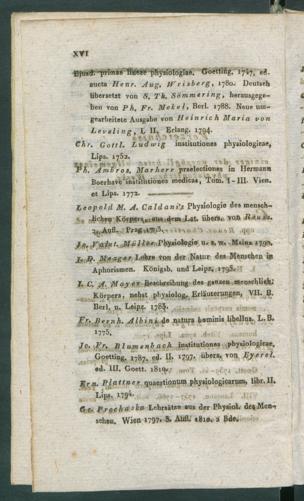 XVI
Ejusd. primae lineae physiologiae. Goetting. 1747. ed.
aucta Henr. Aug. Wrisberg, 1780. Deutsch
übersetzt von S. Th. Sömmering, herausgege-
ben von Ph. Fr. Mekel, Berl. 1788. Neue um-
gearbeitete Ausgabe von Heinrich Maria von
Leveling, I. II. Erlang. 1794.
Chr. Gottl. Ludwig institutiones physiologiae,
Lips. 1752.
Ph. Ambros. Marherr praelectiones in Hermann
Boerhave institutiones medicas, Tom. I-III. Vien.
et Lips. 1772.
Leopold M. A. Caldani's Physiologie des mensch-
lichen Körpers, aus dem Lat. übers. von Reuss.
2. Aufl. Prag
Jo. Valnt. Müller Physiologie u. s. w. Mainz 1790.
I. D. Mezger Lehre von der Natur des Menschen in
Aphorismen. Königsb. und Leipz.
I. C. A. Mayer Beschreibung des ganzen menschlich.
Körpers, nebst physiolog. Erläuterungen, VII. B.
Berl. u. Leipz. 1783.
Fr. Bernh. Albini de natura hominis libellus. L. B.
1775.
Jo. Fr. Blumenbach institutiones physiologiae,
Goetting. 1787. ed. II. 1797. übers. von Eyerel.
ed. III. Goett. 1810.
Ern. Plattner quaestionum physiologicarum, libr. II.
Lips. 1794.
Ge. Prochaska Lehrsätze aus der Physiol. des Men-
schen, Wien 1797. 3. Aufl. 1810. 2 Bde.